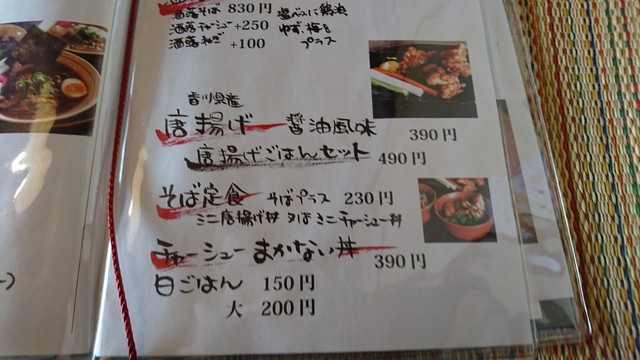 洒落そば 830円 塩ベースに鶏油
洒落チャーシュー +250 ゆず、梅を
洒落ねぎ +100 プラス
香川県産
唐揚げ 醤油風味 390円
唐揚げごはんセット 490円
そば定食 そばプラス 230円
ミニ唐揚げ丼 又はミニチャーシュー丼
チャーシューまかない丼 390円
白ごはん 150円
大 200円